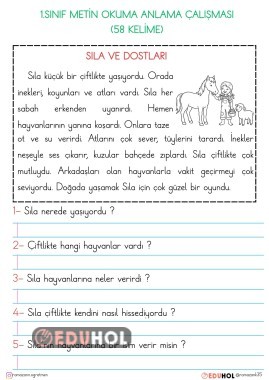 1.SINIF METİN OKUMA ANLAMA ÇALIŞMASI
(58 KELİME)
SILA VE DOSTLARI
Sıla küçük bir çiftlikte yaşıyordu. Orada
inekleri, koyunları ve atları vardı. Sıla her
sabah erkenden uyanırdı. Hemen
hayvanlarının yanına koşardı. Onlara taze
ot ve su verirdi. Atlarını çok sever, tüylerini tarardı. İnekler
neşeyle ses çıkarır, kuzular bahçede zıplardı. Sıla çiftlikte çok
mutluydu. Arkadaşları olan hayvanlarla vakit geçirmeyi çok
seviyordu. Doğada yaşamak Sıla için çok güzel bir oyundu.
1- Sıla nerede yaşıyordu ?
2- Çiftlikte hangi hayvanlar vardı ?
3- Sıla hayvanlarına neler verirdi ?
4- Sıla çiftlikte kendini nasıl hissediyordu ?
EDUHOL
5- Sıla'nın hayvanlarına bir isim verir misin ?
EDUHOL